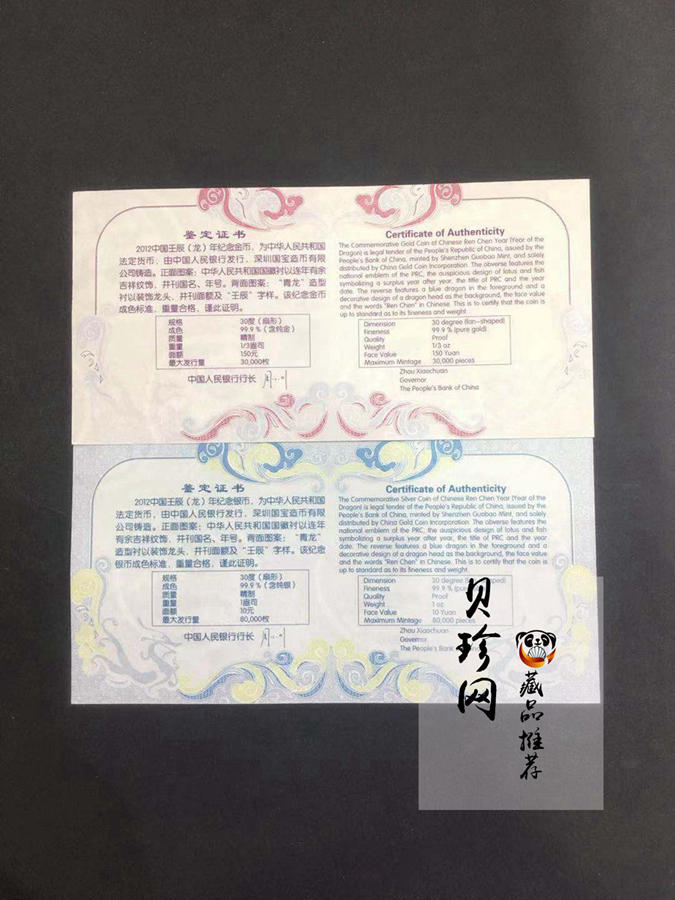 鉴定证书
2012中国壬辰（龙）年纪念金币，为中华人民共和国
法定货币，由中国人民银行发行，深圳国宝造币有限
公司铸造。正面图案：中华人民共和国国徽衬以连年有余
吉祥纹饰，并刊国名、年号。背面图案：“青龙”造型
衬以装饰龙头，并刊面额及“壬辰”字样。该纪念金币
成色标准，重量合格，谨此证明。
规格 30度（扇形）
成色 99.9％（含纯金）
质量 精制
重量 1/3盎司
面额 150元
最大发行量 30,000枚
中国人民银行行长
Certificate of Authenticity
The Commemorative Gold Coin of Chinese Ren Chen Year (Year of the
Dragon) is legal tender of the People's Republic of China, issued by the
People's Bank of China, minted by Shenzhen Guobao Mint, and solely
distributed by China Gold Coin Incorporation. The obverse features the
national emblem of the PRC, the auspicious design of lotus and fish
symbolizing a surplus year after year, the title of PRC and the year
date. The reverse features a blue dragon in the foreground and a
decorative design of a dragon head as the background, the face value
and the words "Ren Chen" in Chinese. This is to certify that the coin is
up to standard as to its fineness and weight.
Dimension 30 degree (fan-shaped)
Fineness 99.9 % (pure gold)
Quality Proof
Weight 1/3 oz
Face Value 150 Yuan
Maximum Mintage 30,000 pieces
Zhou Xiaochuan
Governor
The People's Bank of China
鉴定证书
2012中国壬辰（龙）年纪念银币，为中华人民共和国
法定货币，由中国人民银行发行，深圳国宝造币有限
公司铸造。正面图案：中华人民共和国国徽衬以连年
有余吉祥纹饰，并刊国名、年号。背面图案：“青龙”
造型衬以装饰龙头，并刊面额及“壬辰”字样。该纪念
银币成色标准，重量合格，谨此证明。
规格 30度（扇形）
成色 99.9％（含纯银）
质量 精制
重量 1盎司
面额 10元
最大发行量 80,000枚
中国人民银行行长
Certificate of Authenticity
The Commemorative Silver Coin of Chinese Ren Chen Year (Year of the
Dragon) is legal tender of the People's Republic of China, issued by the
People's Bank of China, minted by Shenzhen Guobao Mint, and solely
distributed by China Gold Coin Incorporation. The obverse features the
national emblem of the PRC, the auspicious design of lotus and fish
symbolizing a surplus year after year, the title of PRC and the year
date. The reverse features a blue dragon in the foreground and a
decorative design of a dragon head as the background, the face value
and the words "Ren Chen" in Chinese. This is to certify that the coin is
up to standard as to its fineness and weight.
Dimension 30 degree (fan-shaped)
Fineness 99.9 % (pure silver)
Quality Proof
Weight 1 oz
Face Value 10 Yuan
Maximum Mintage 80,000 pieces
Zhou Xiaochuan
Governor
The People's Bank of China
贝珍网
藏品推荐